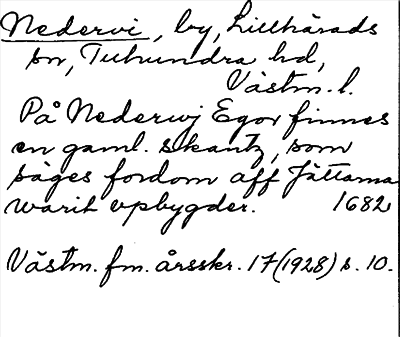 Nedervi, by, Lillhärads
sn, Tuhundra hd,
Västm. l.
På Nederwj Egor finnes
en gaml. skantz, som
säges fordom aff Jättarna
warit vpbygder. 1682
Västm. fm. årsskr. 17 (1928) s. 10.